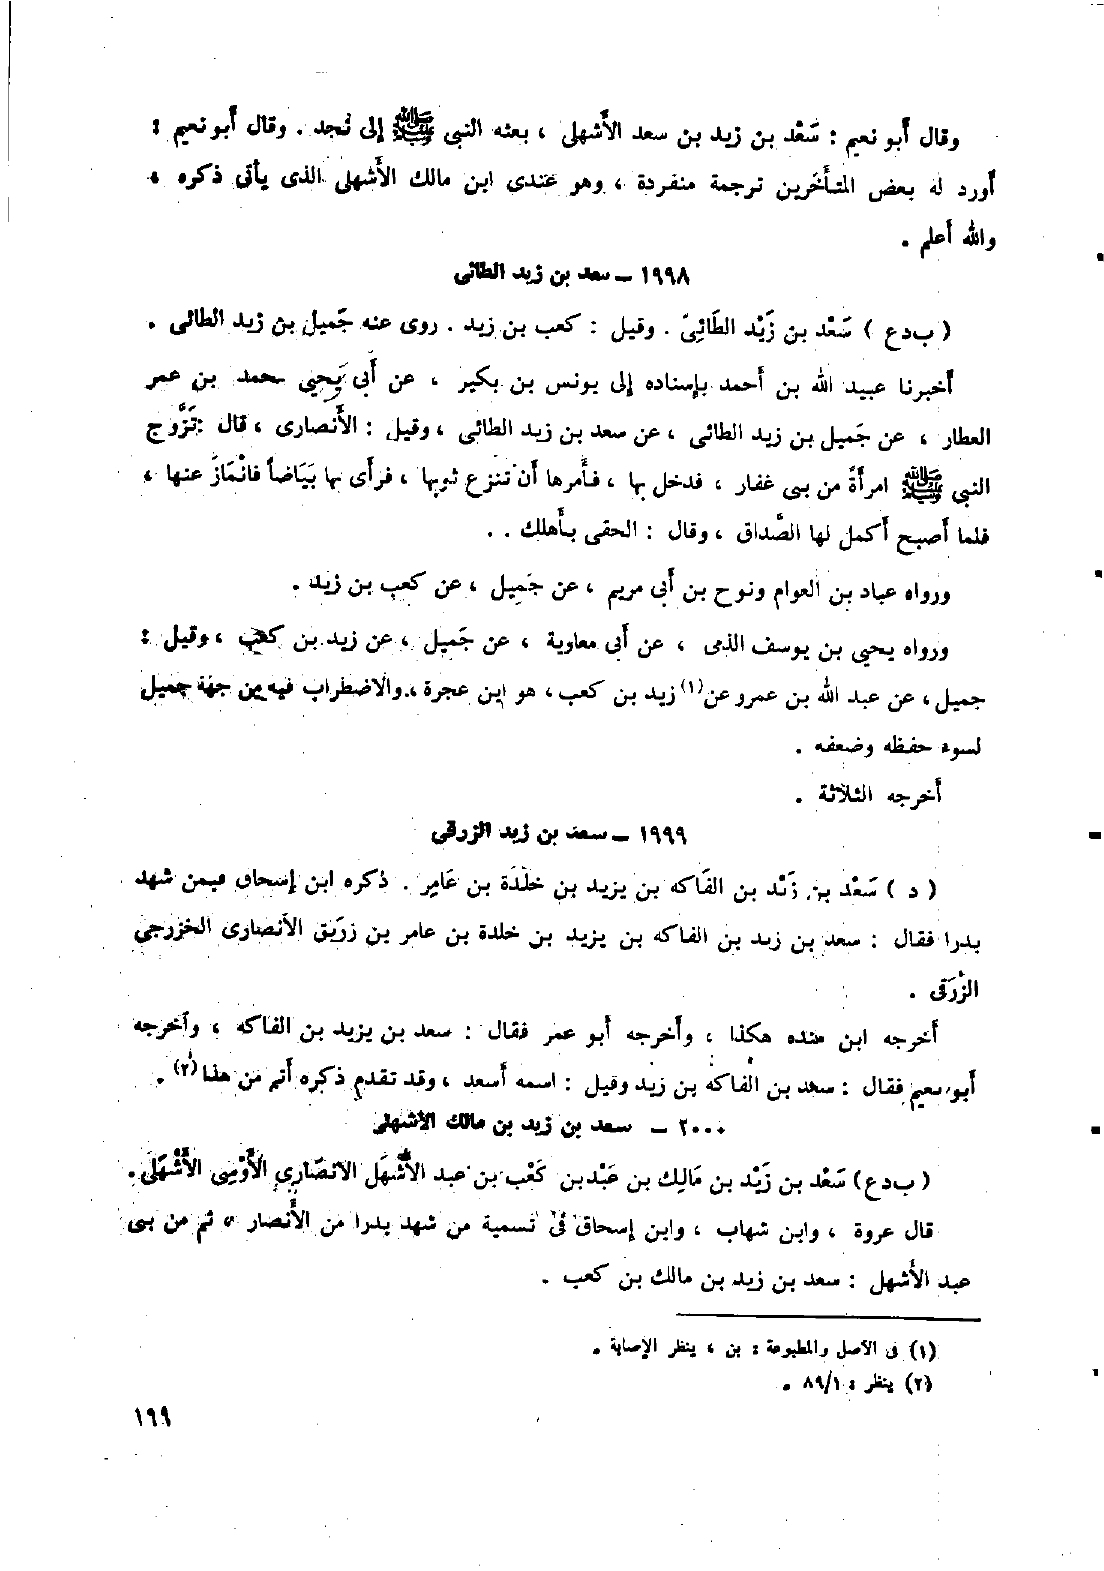 وقال أبو نعيم : سَعْد بن زيد بن سعد الأشهلى ، بعثه النبى ﷺ إلى نجد . وقال أبو نعيم :
أورد له بعض المتأخرين ترجمة منفردة ، وهو عندى ابن مالك الأشهلى الذى يأتى ذكره ،
والله أعلم .
١٩٩٨ ــ سعد بن زيد الطائى
( ب د ع ) سَعْد بن زَيْد الطَائِىّ . وقيل : كعب بن زيد . روى عنه جَميل بن زيد الطائى .
أخبرنا عبيد الله بن أحمد بإسناده إلى يونس بن بكير ، عن أبى يَحيى محمد بن عمر
العطار ، عن جَميل بن زيد الطائى ، عن سعد بن زيد الطائى ، وقيل : الأنصارى ، قال : تَزَوَّج
النبى ﷺ امرأةً من بنى غفار ، فدخل بها ، فأمرها أن تنزع ثوبها ، فرأى بها بَيَاضاً فانْمَازَ عنها ،
فلما أصبح أكمل لها الصَّداق ، وقال : الحقى بأهلك . .
ورواه عباد بن العوام ونوح بن أبى مريم ، عن جَمِيل ، عن كعب بن زيد .
ورواه يحيى بن يوسف الذمى ، عن أبى معاوية ، عن جَميل ، عن زيد بن كعب ، وقيل :
جميل ، عن عبد الله بن عمرو عن(١) زيد بن كعب ، هو ابن عجرة ، والاضطراب فيه من جهة جميل
لسوء حفظه وضعفه .
أخرجه الثلاثة .
١٩٩٩ ــ سعد بن زيد الزرقى
( د ) سَعْد بن زَيْد بن الفَاكه بن يزيد بن خَلْدَة بن عَامِر . ذكره ابن إسحاق فيمن شهد
بدرا فقال : سعد بن زيد بن الفاكه بن يزيد بن خلدة بن عامر بن زريق الأنصارى الخزرجي
الزُّرَقى .
أخرجه ابن منده هكذا ، وأخرجه أبو عمر فقال : سعد بن يزيد بن الفاكه ، وأخرجه
أبو نعيم فقال : سعد بن الفاكه بن زيد وقيل : اسمه أسعد ، وقد تقدم ذكره أتم من هذا(٢) .
٢٠٠٠ ــ سعد بن زيد بن مالك الأشهلى
( ب د ع ) سَعْد بن زَيْد بن مَالِك بن عَبْد بن كَعْب بن عبد الأشْهَل الأنصَارِي الأوْسِى الأشْهَلى .
قال عروة ، وابن شهاب ، وابن إسحاق فى تسمية من شهد بدرا من الأنصار ، ثم من بنى
عبد الأشهل : سعد بن زيد بن مالك بن كعب .
(١) فى الأصل والمطبوعة : بن ، ينظر الإصابة .
(٢) ينظر : ٨٩/١ .
١٩٩